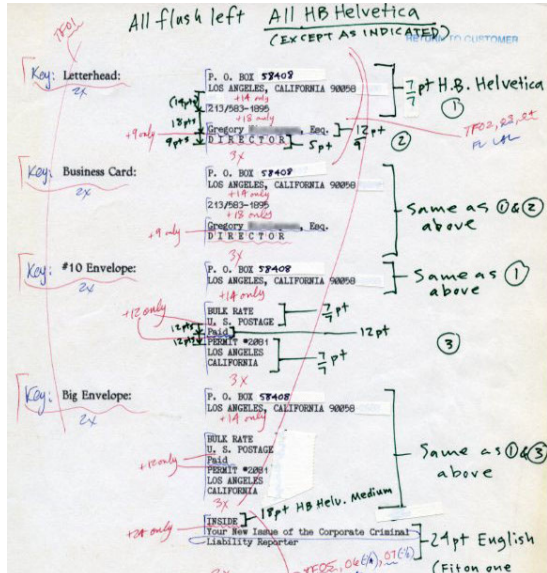 TF01
All flush left All HB Helvetica
(EXCEPT AS INDICATED)
RETURN TO CUSTOMER
Key: Letterhead:
2x
P. O. BOX 58408
LOS ANGELES, CALIFORNIA 90058
+14 only
(14pts)
213/583-1895
18pts
+18 only
Gregory Esq.
+9 only
9pts
DIRECTOR
5pt
3x
7/7 pt H.B. Helvetica
①
12pt/9
②
TF02,
Key: Business Card:
2x
P. O. BOX 58408
LOS ANGELES, CALIFORNIA 90058
+14 only
213/583-1895
+18 only
Gregory , Esq.
+9 only
DIRECTOR
3x
Same as ①&②
above
Key: #10 Envelope:
2x
P. O. BOX 58408
LOS ANGELES, CALIFORNIA 90058
+14 only
Same as ①
above
+12 only
BULK RATE
U. S. POSTAGE
7/7 pt
12pts
Paid
12pt
12pts
PERMIT #2081
LOS ANGELES
CALIFORNIA
7/7 pt
③
3x
Key: Big Envelope:
2x
P. O. BOX 58408
LOS ANGELES, CALIFORNIA 90058
+14 only
BULK RATE
U. S. POSTAGE
+12 only
Paid
PERMIT #2081
LOS ANGELES
CALIFORNIA
3x
Same as ①&③
above
18pt HB Helv. Medium
INSIDE
+24 only
Your New Issue of the Corporate Criminal
Liability Reporter
24pt English
(Fit on one